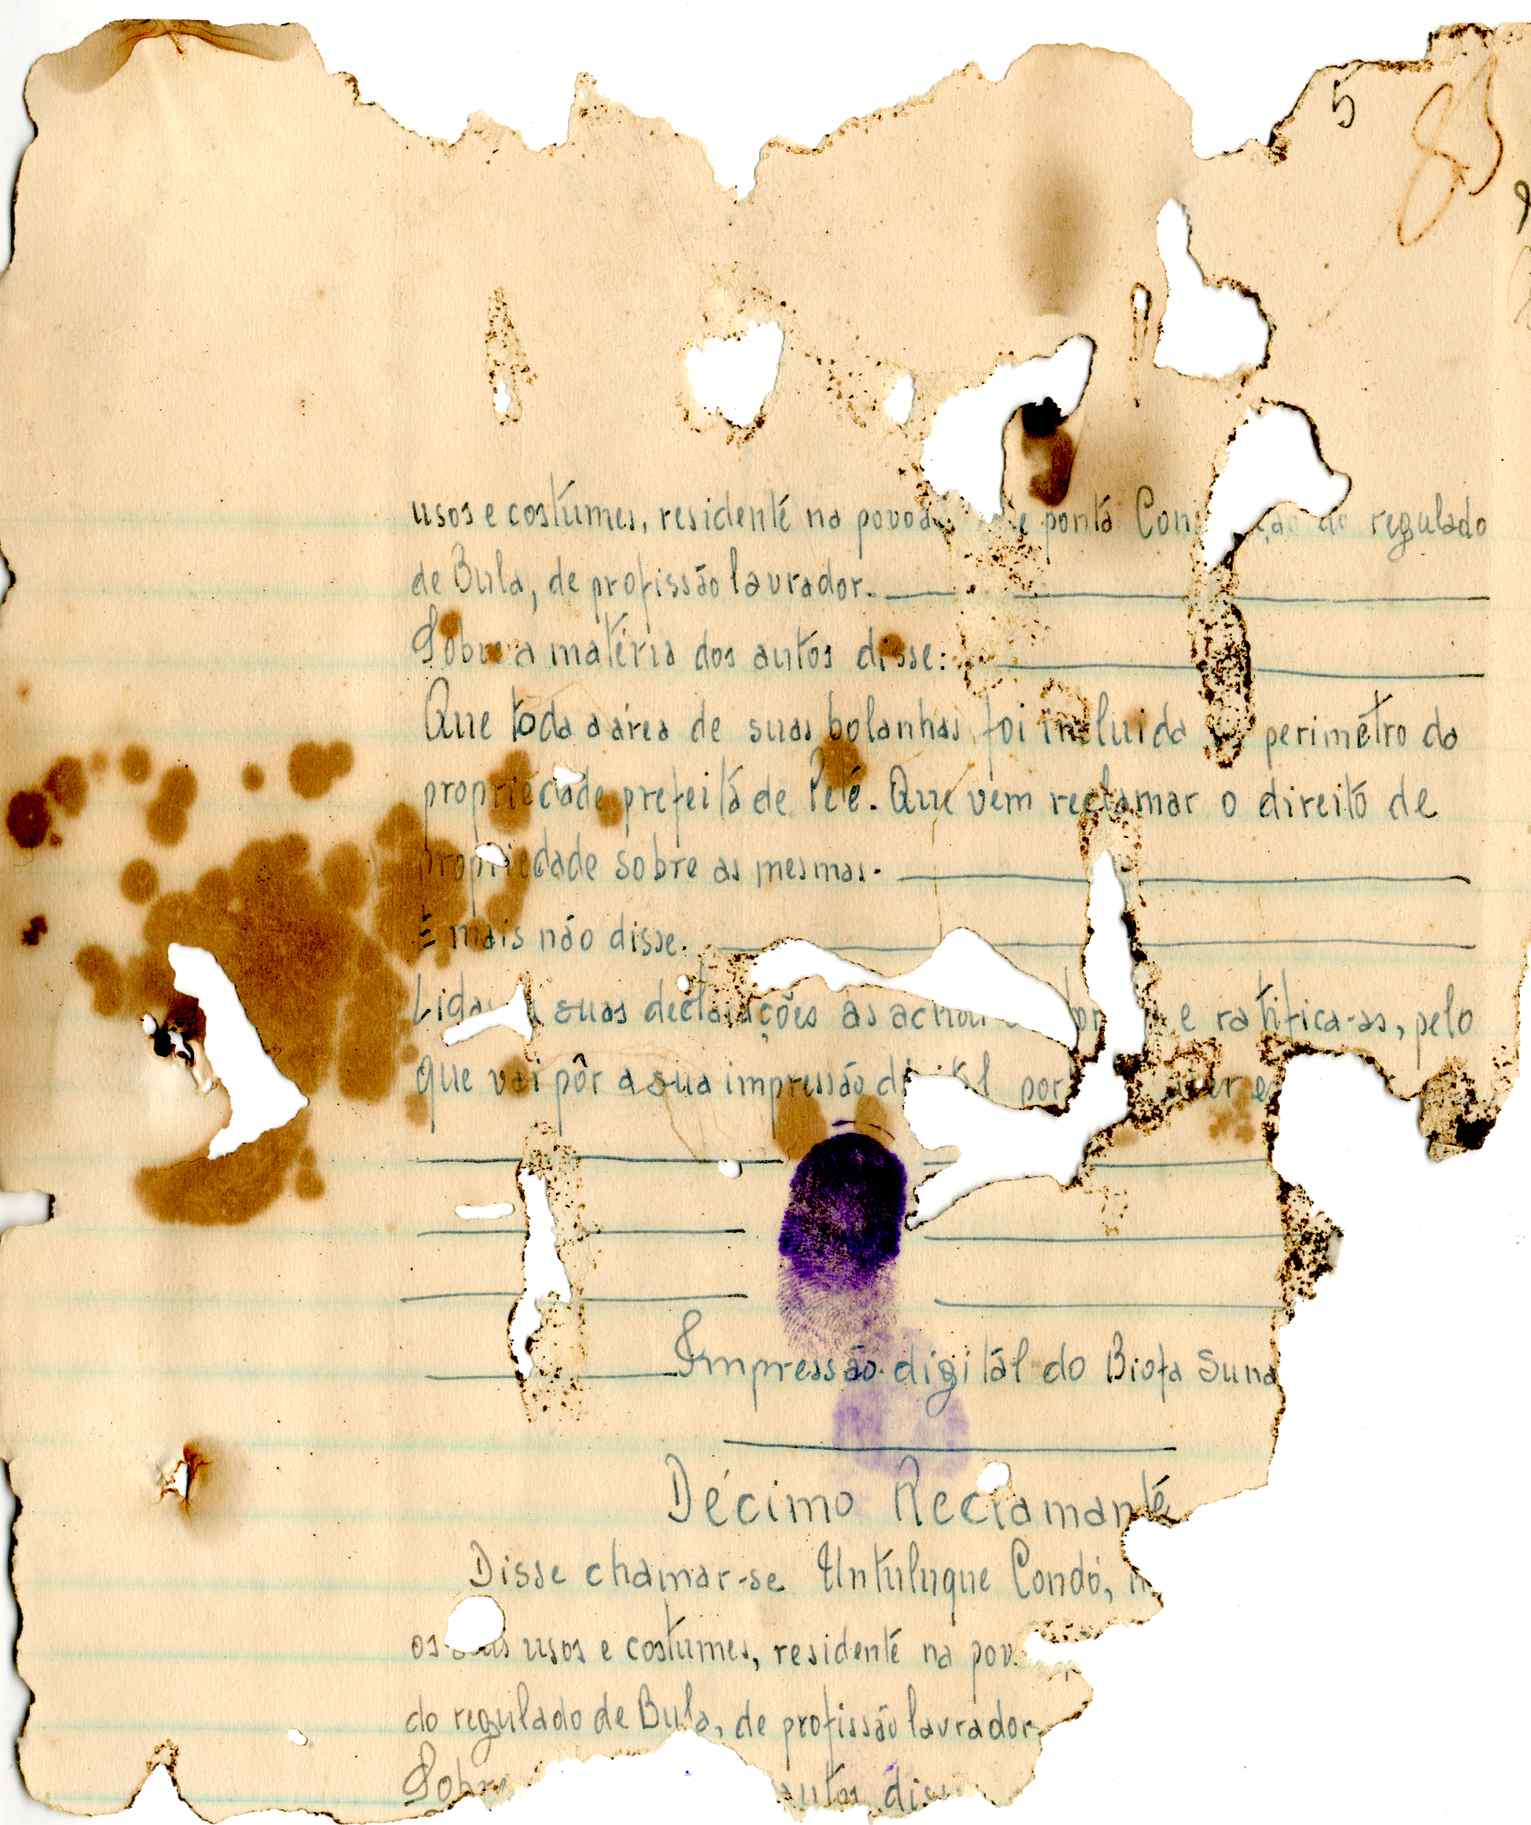 5
83
usos e costumes, residente na ponta regulado
de Bula, de profissão lavrador.
Sobre a matéria dos autos disse:
Que toda a área de suas bolanhas foi incluida perimetro da
propriedade prefeita de Pelé. Que vem reclamar o direito de
propriedade sobre as mesmas.
E mais não disse.
suas declarações as achou e ratifica-as, pelo
que vai pôr a sua impressão digital por
Impressão digitál do Biofa Suna
Décimo Reclamante
Disse chamar-se Untuluque Condó,
os seus usos e costumes, residente na
do regulado de Bula, de profissão lavrador
Sobre autos disse